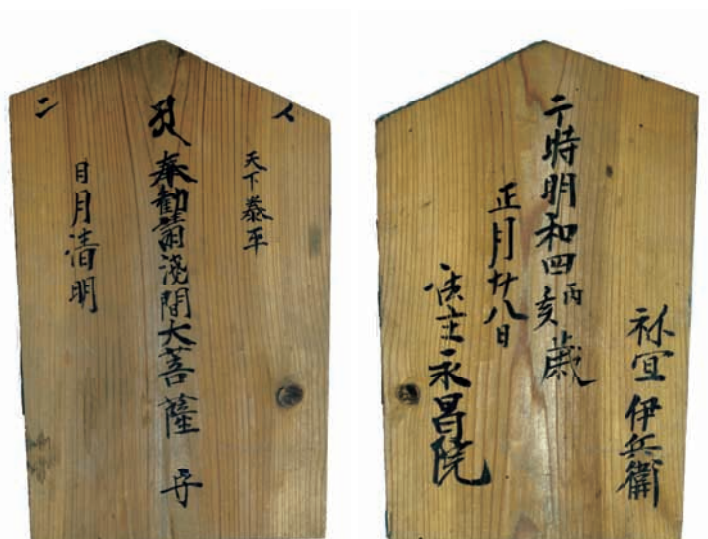 天下泰平
奉勸請淺間大菩薩
日月清明
祢宜 伊兵衛
于時明和四丙亥歳
正月廿八日
法主永昌院